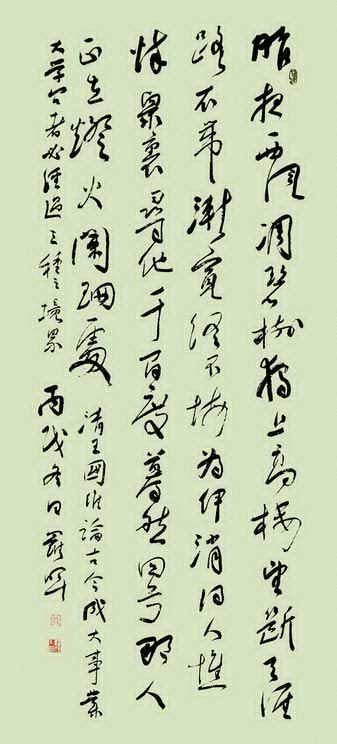 昨夜西風凋碧樹獨上高樓望斷天涯
路衣帶漸寬終不悔為伊消得人憔
悴眾裏尋他千百度驀然回首那人
正在燈火闌珊處 清王國維論古今成大事業
大學問者必經過三種之境界 丙戌冬日